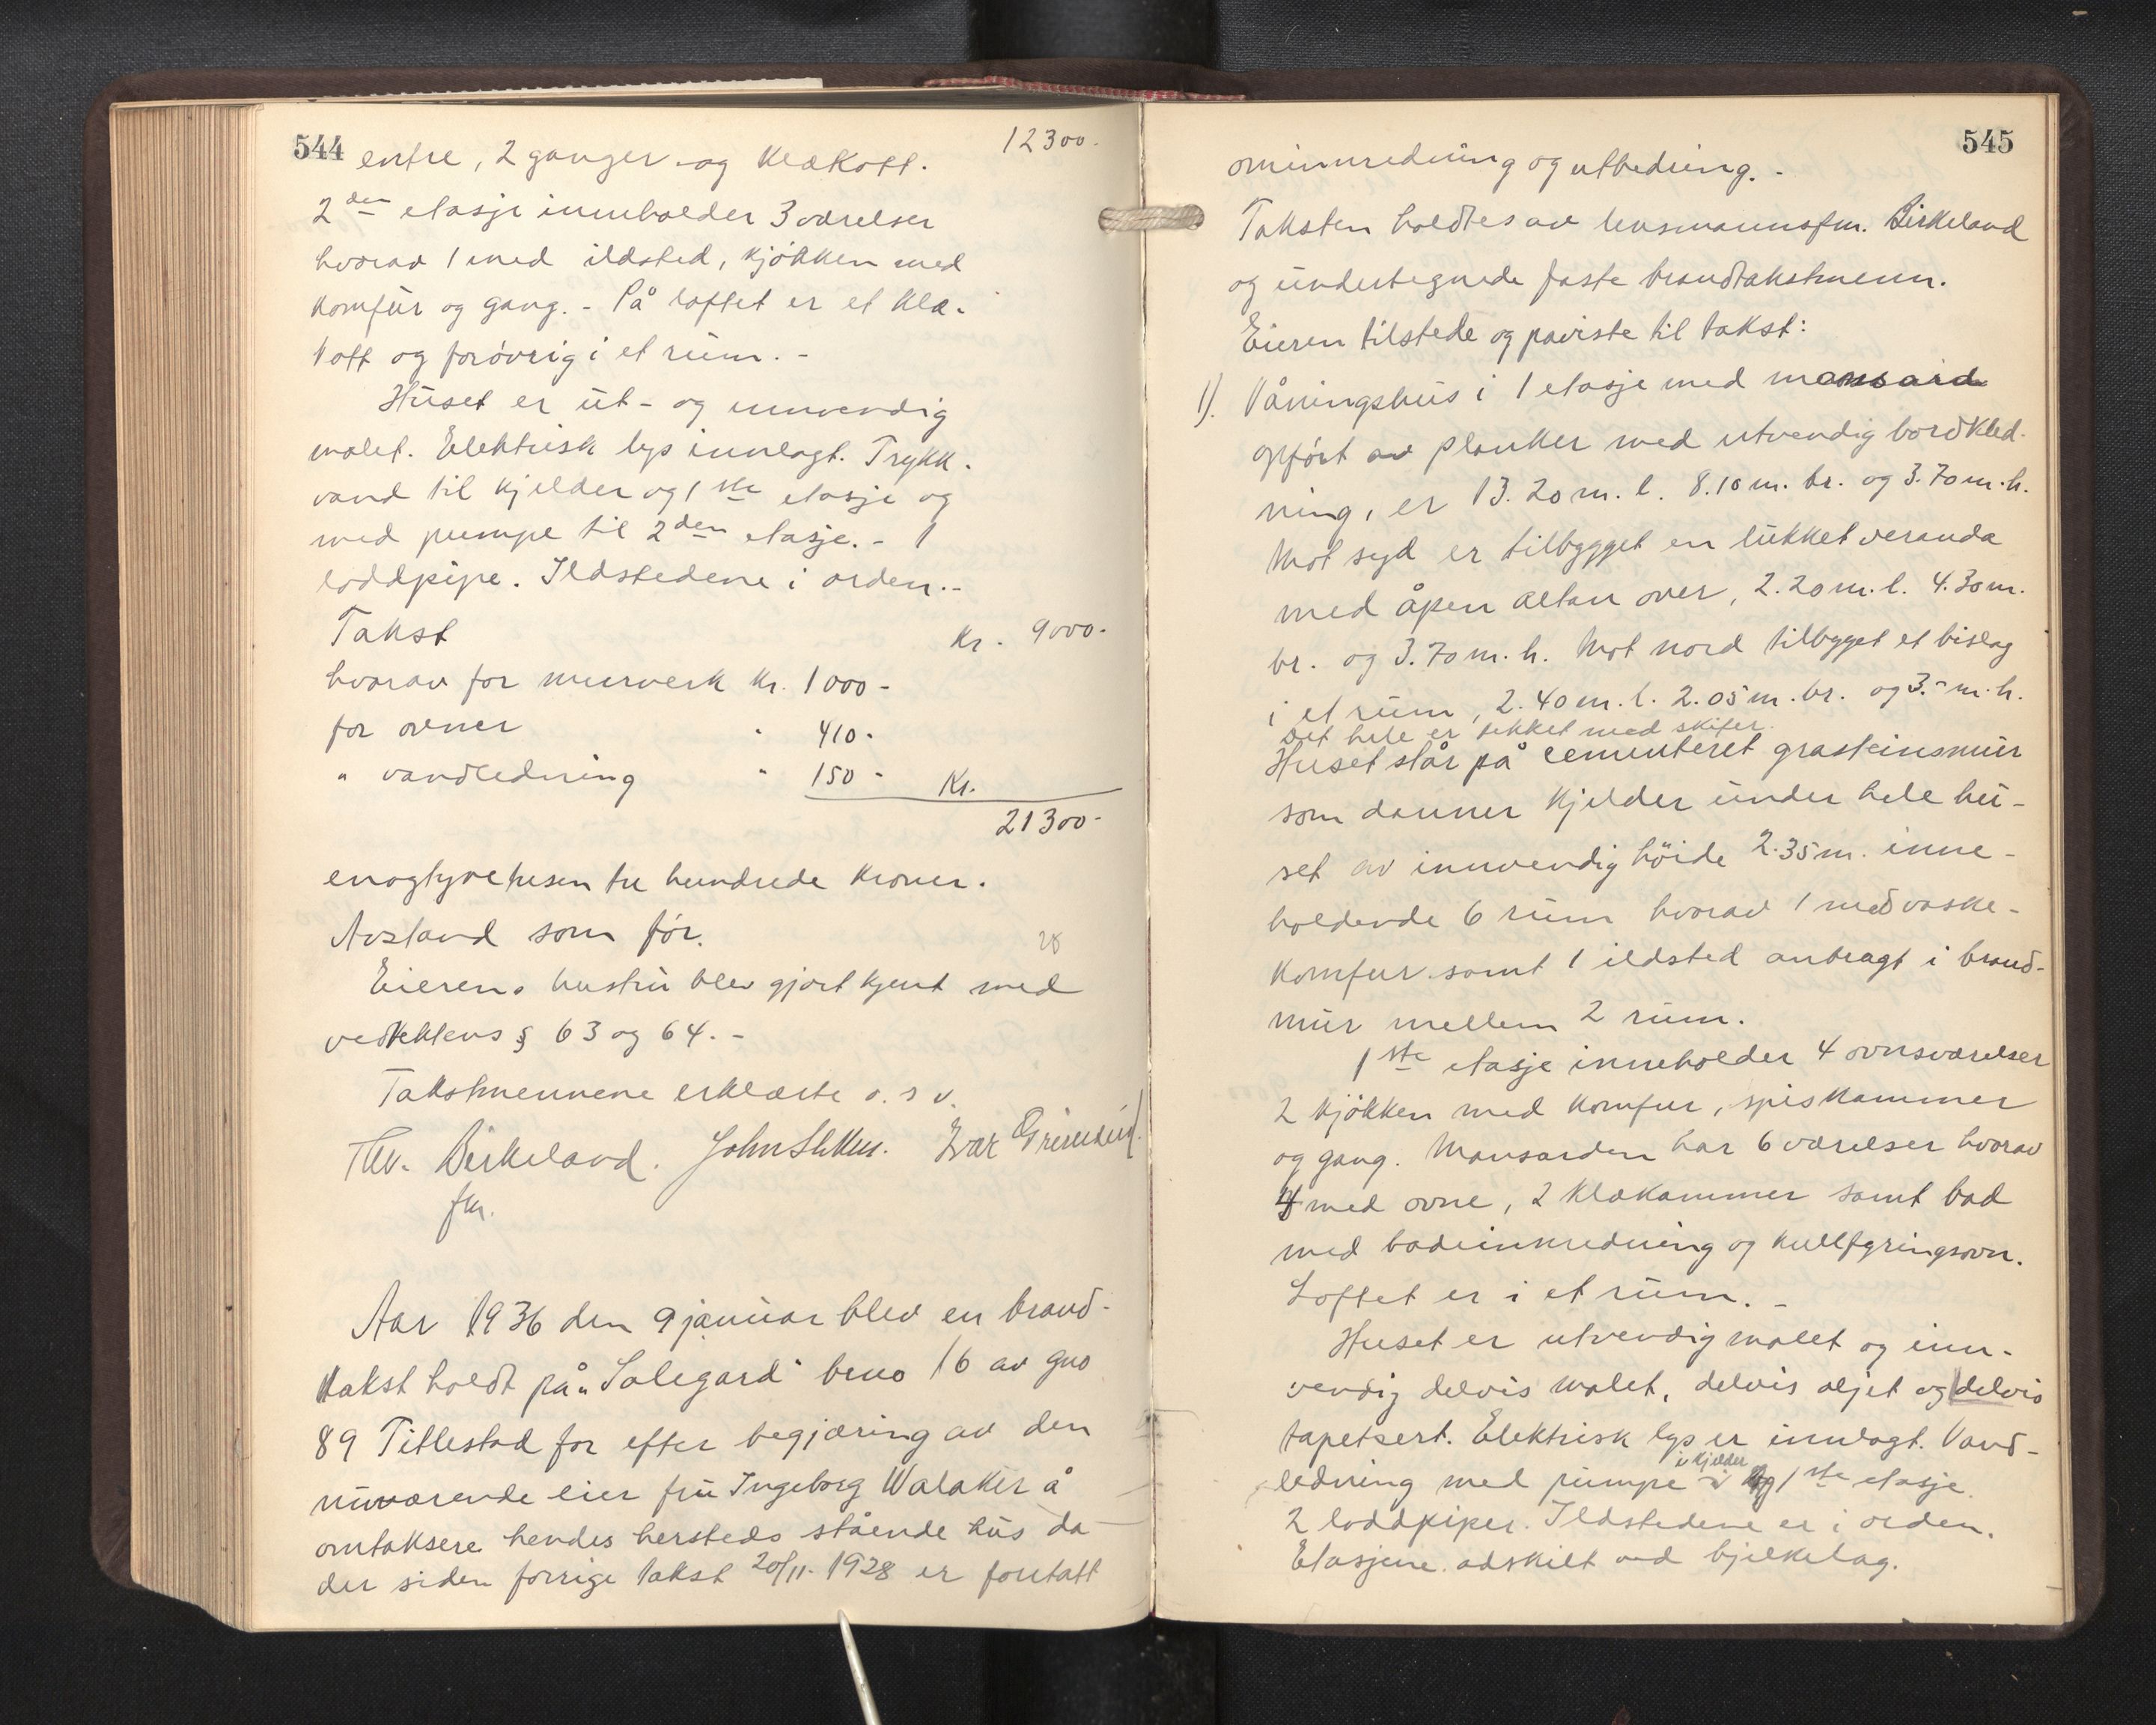 544
12300.
entre, 2 ganger og klækott.
2den etasje inneholder 3 værelser
hvorav 1 med ildsted, kjøkken med
komfür og gang. - På loftet er et klæ-
kott og forøvrig i et rüm. -
Hüset er üt- og innvendig
malet. Elektrisk lys innlagt. Trykk-
vand til kjelder og 1ste etasje og
med pumpe til 2den etasje. - 1
loddpipe. Ildstedene i orden. -
Takst kr. 9000.
hvorav for murverk kr. 1000 -
for ovner " 410 -
" vandledning " 150 - Kr.
21300 -
enogtyvetusen tre hundrede kroner.
Avstand som før.
Eierens hustrü blev gjort kjent med
vedtektens § 63 og 64. -
Takstmennene erklærte o. s v.
Thv. Birkeland. John Ivar
fm.
Aar 1936 den 9 januar blev en brand-
takst holdt på "Solegard" bruno 16 av gno
89 Titlestad for efter begjæring av den
nüværende eier frü Ingeborg Walaker å
omtaksere hendes hersteds stående hüs da
der siden forrige takst 20/11. 1928 er foretatt
545
ominnredning og utbedring. -
Taksten holdtes av lensmannsfm. Birkeland
og ündertegnede faste brandtakstmenn.
Eieren tilstede og paviste til takst:
1). Våningshüs i 1 etasje med mansard
opført av planker med utvendig bordkled-
ning, er 13.20 m. l. 8.10 m. br. og 3.70 m. h.
Mot syd er tilbygget en lükket veranda
med åpen altan over, 2.20 m. l. 4.30 m.
br. og 3.70 m. h. Mot nord tilbygget et bislag
i et rüm, 2.40 m. l. 2.05 m. br. og 3.- m. h.
Det hele er tekket med skifer.
Huset står på cementeret gråsteinsmür
som danner kjelder ünder hele hü-
set av innvendig höide 2.35 m. inne-
holdende 6 rüm hvorav 1 med vaske-
komfur samt 1 ildsted anbragt i brand-
mür mellem 2 rüm.
1ste etasje inneholder 4 ovnsværelser
2 kjøkken med komfur, spiskammer
og gang. Mansarden har 6 værelser hvorav
4 med ovne, 2 klækammer samt bad
med badeinnredning og kullfyringsovn.
Loftet er i et rüm. -
Huset er utvendig malet og inn-
vendig delvis malet, delvis oljet og delvis
tapetsert. Elektrisk lys er innlagt. Vand-
ledning med pümpe i kjelder og 1ste etasje.
2 loddpiper. Ildstedene er i orden.
Etasjene adskilt ved bjelkelag.